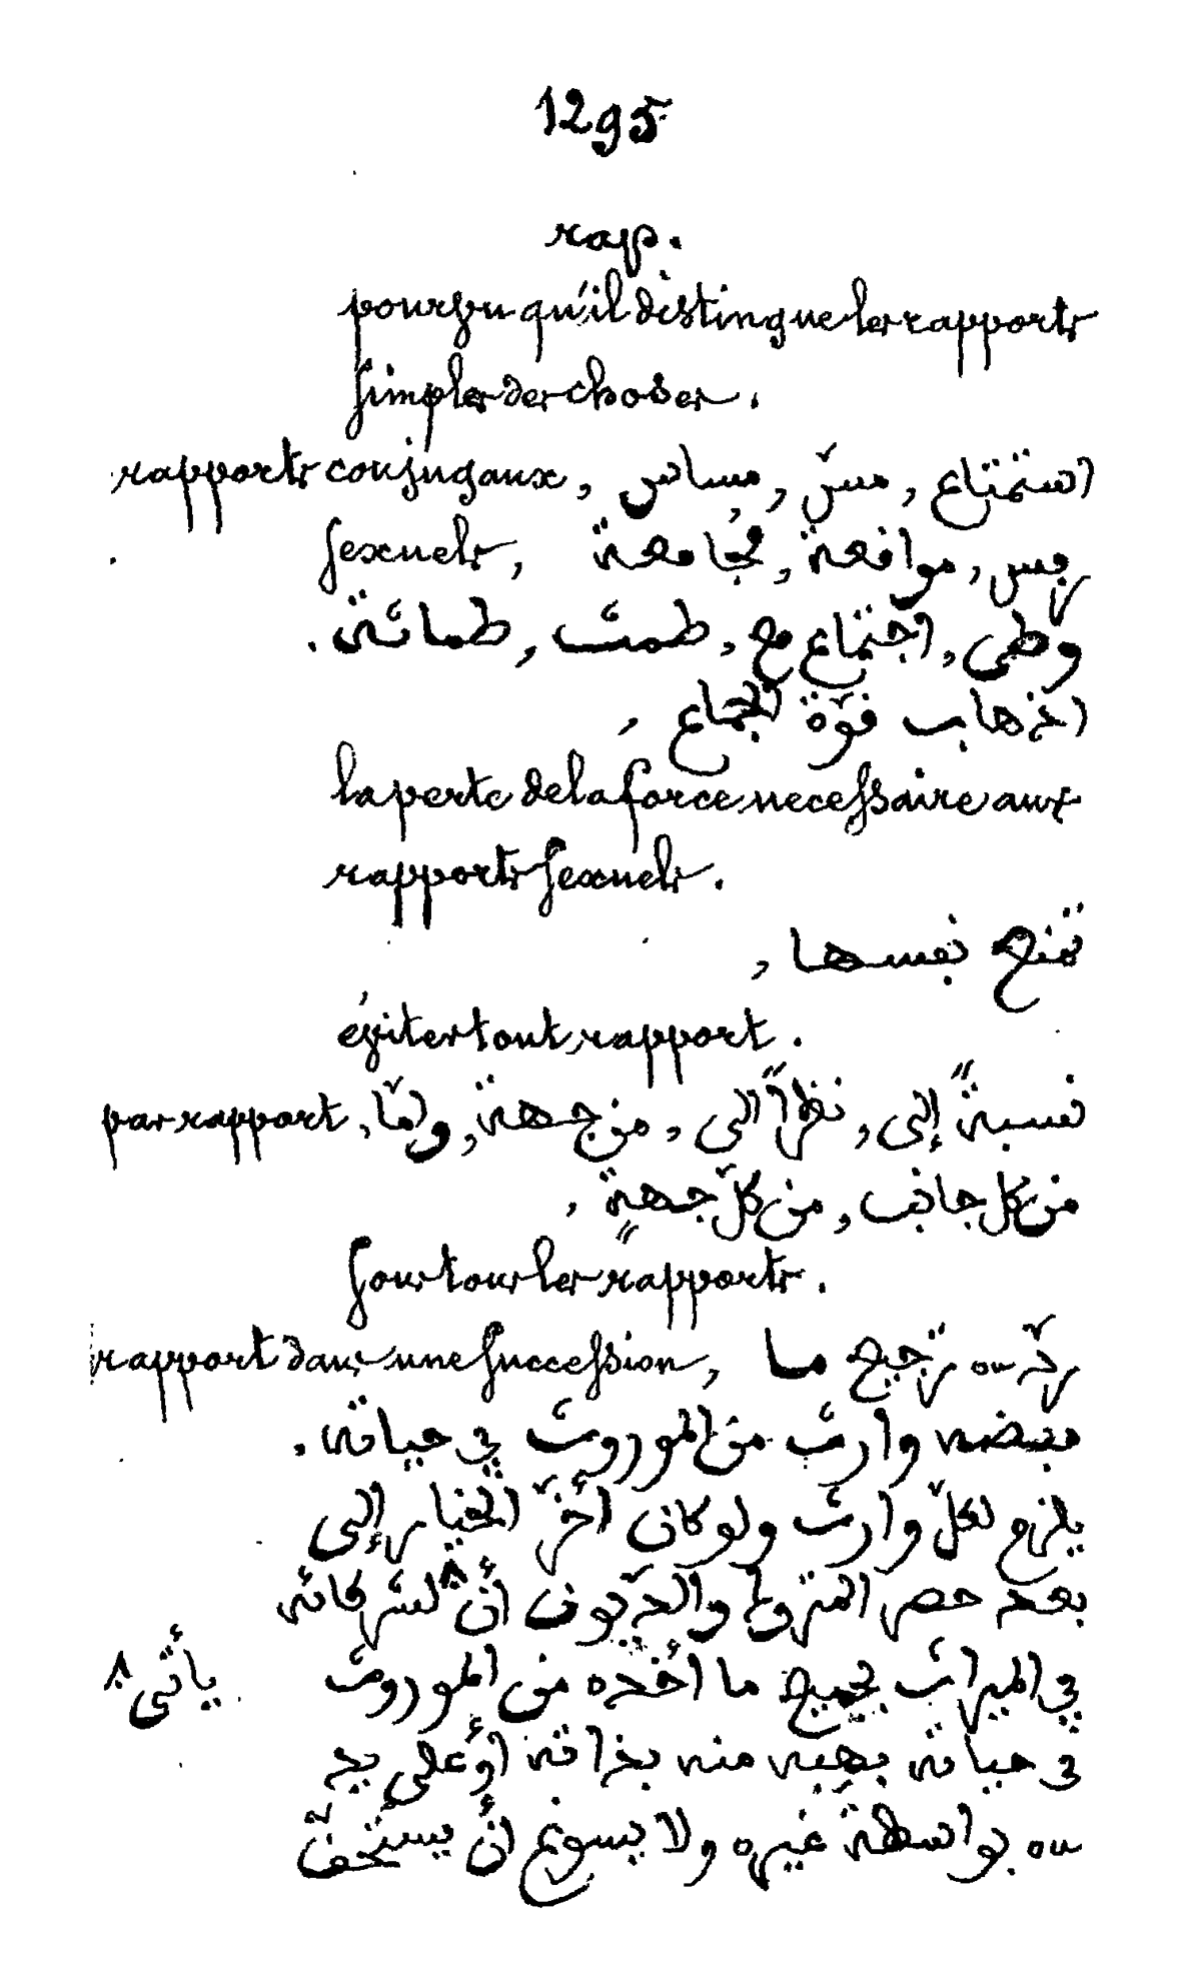 1295
rap.
pourvu qu'il distingue les rapports
simples des choses.
rapports conjugaux, استمتاع, مسّ, مِساس
sexuels, رفس, مواقعة, مُجامعة
وطى, اجتماع مع, طمث, طماثة.
اذهاب قوّة الجماع,
la perte de la force necessaire aux
rapports sexuels.
تمنع نفسها,
éviter tout rapport.
par rapport, نسبةً إلى, نظراً الى, من جهة, وامّا
من كل جانب, من كلّ جهةٍ,
sous tous les rapports.
rapport dans une succession, ردّ ou ترجيع ما
قبضه وارث من الموروث في حياته.
يلزم لكلّ وارث ولو كان أخّر الخيار إلى
بعد حصر المتروك والديون أن ^ لشركائه
يأتي ^ في الميراث بجميع ما أخذه من الموروث
في حياته بهبه منه بذاته أو على يد
ou بواسطة غيره ولا يسوغ أن يستحقّ